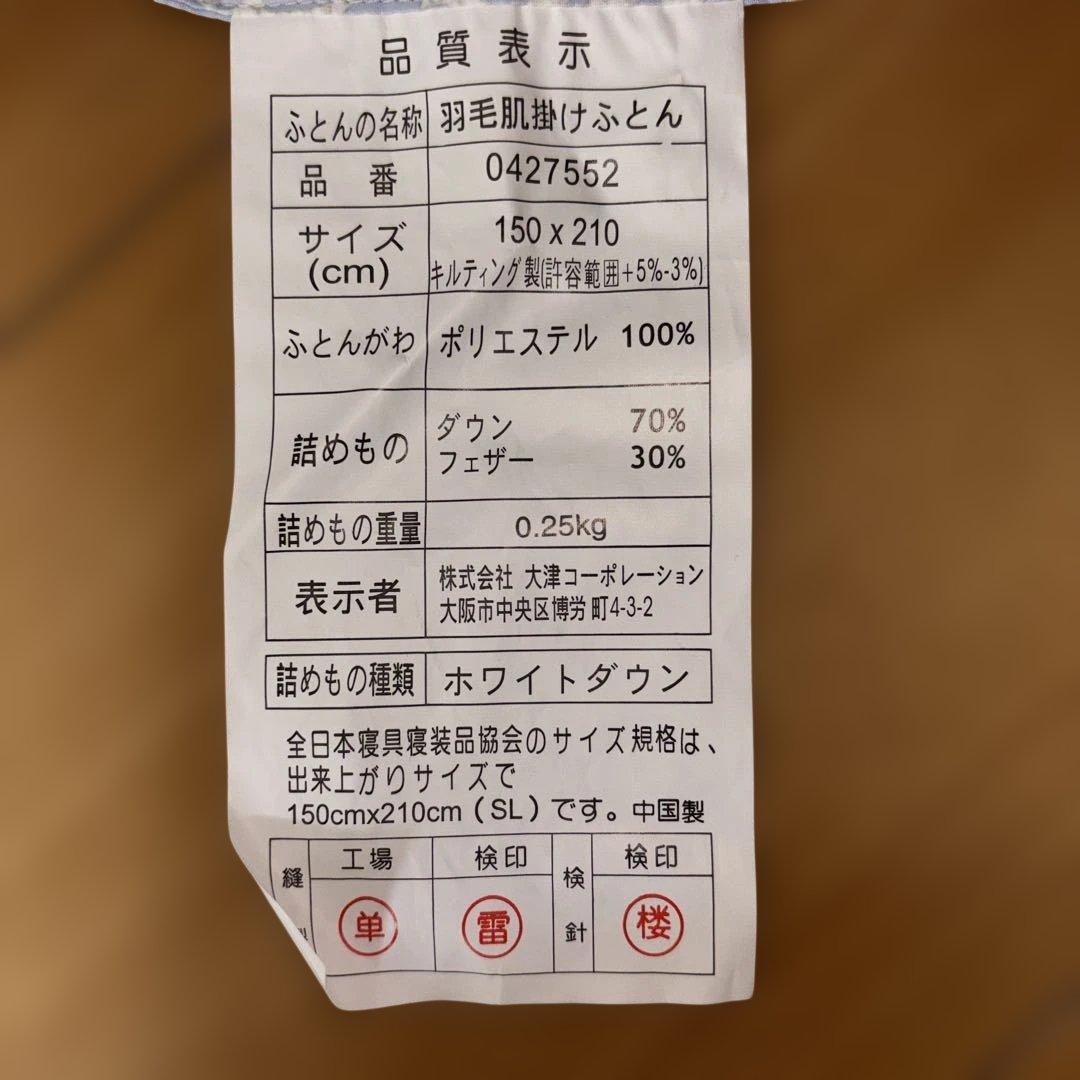 品質表示
ふとんの名称 羽毛肌掛けふとん
品 番 0427552
サイズ 150 x 210
(cm) キルティング製(許容範囲+5%-3%)
ふとんがわ ポリエステル 100%
詰めもの ダウン 70%
フェザー 30%
詰めもの重量 0.25kg
表示者 株式会社 大津コーポレーション
大阪市中央区博労町4-3-2
詰めもの種類 ホワイトダウン
全日本寝具寝装品協会のサイズ規格は、
出来上がりサイズで
150cmx210cm(SL)です。中国製
縫 工場 検印 検針 検印
単 雷 楼